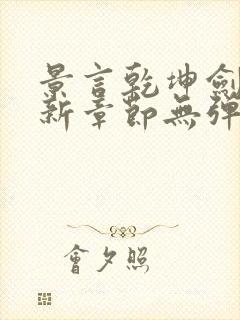 景言乾坤劍
新章節無彈
會夕照